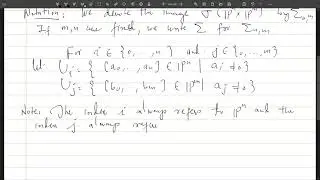 Notation: We denote the image σ(ℙⁿ, ℙᵐ) by Σₙ,ₘ
If m,n are fixed, we write Σ for Σₙ,ₘ
For i ∈ {0, .., n} and j ∈ {0, .., m}
Let Uᵢ = { (a₀, .., aₙ) ∈ ℙⁿ | aᵢ ≠ 0 }
Uⱼ = { (b₀, .., bₘ) ∈ ℙᵐ | aⱼ ≠ 0 }
Note: The index i always refers to ℙⁿ and the
index j always refer